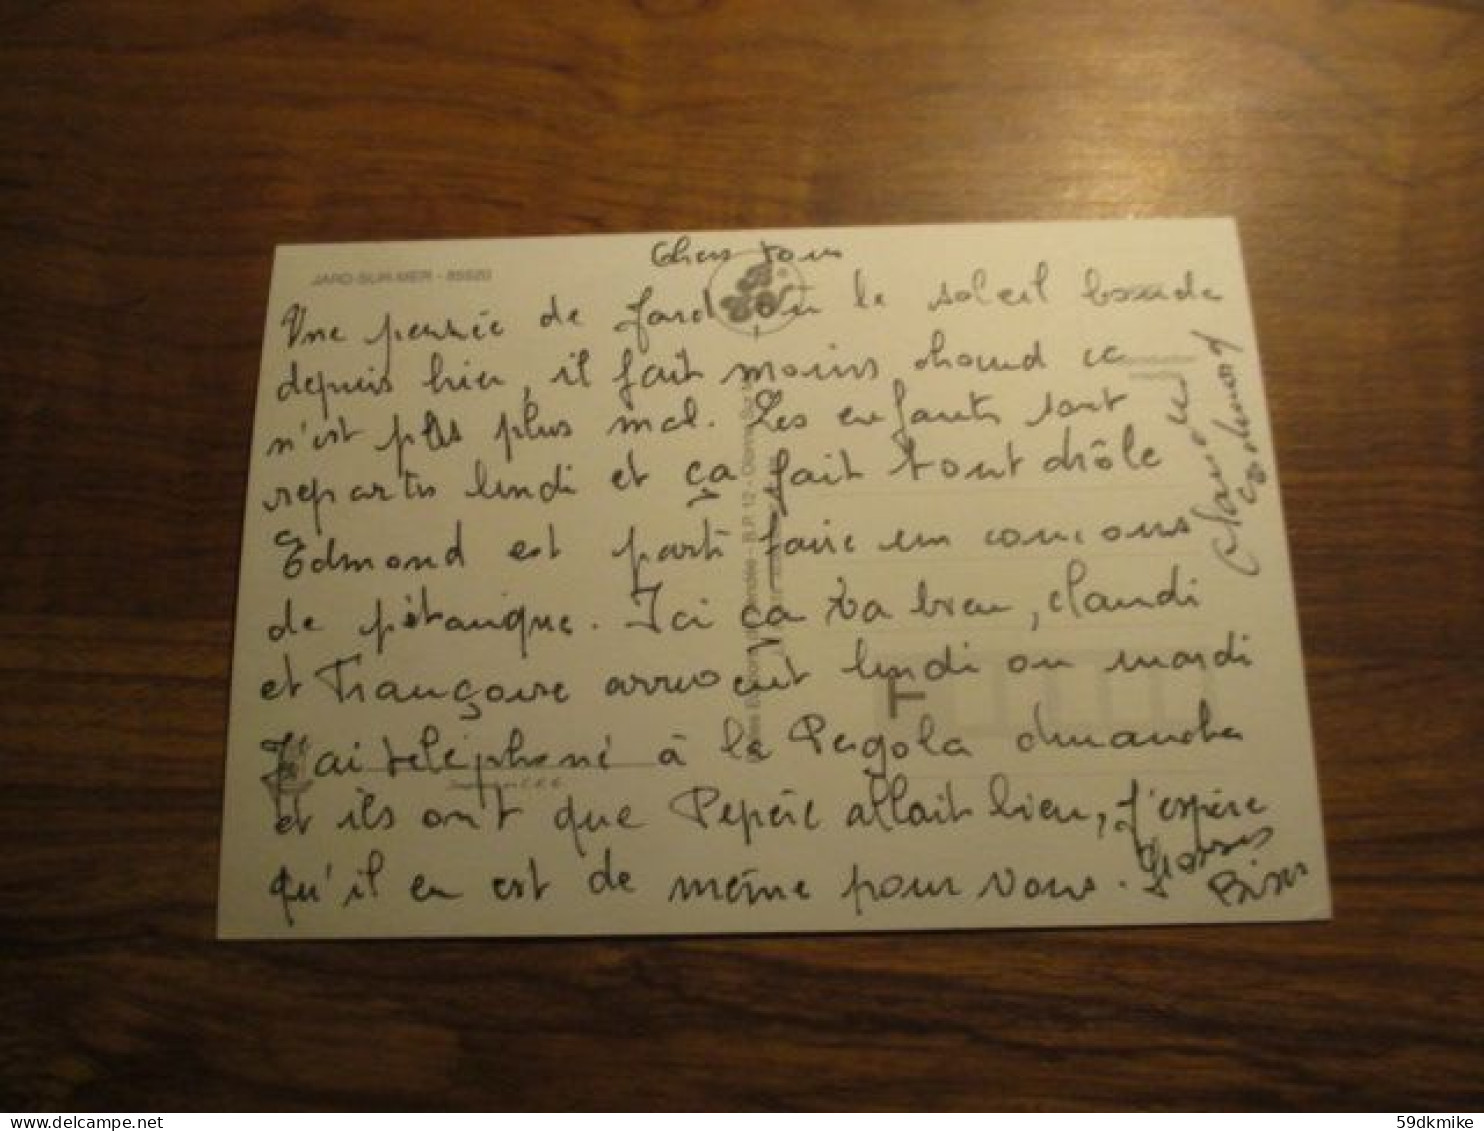 JARD-SUR-MER - 85520
Chers tous
Une pensée de Jard où le soleil boude
depuis hier, il fait moins chaud ce
n'est pas plus mal. Les enfants sont
repartis lundi et ça fait tout drôle
Edmond est parti faire un concours
de pétanque. Ici ça va bien, Claudi
et Françoise arrivent lundi ou mardi
J'ai téléphoné à la Pergola dimanche
et ils ont que Pépère allait bien, j'espère
qu'il en est de même pour vous. Grosses
Bises
Edmond
B.P. 12
59dkmike